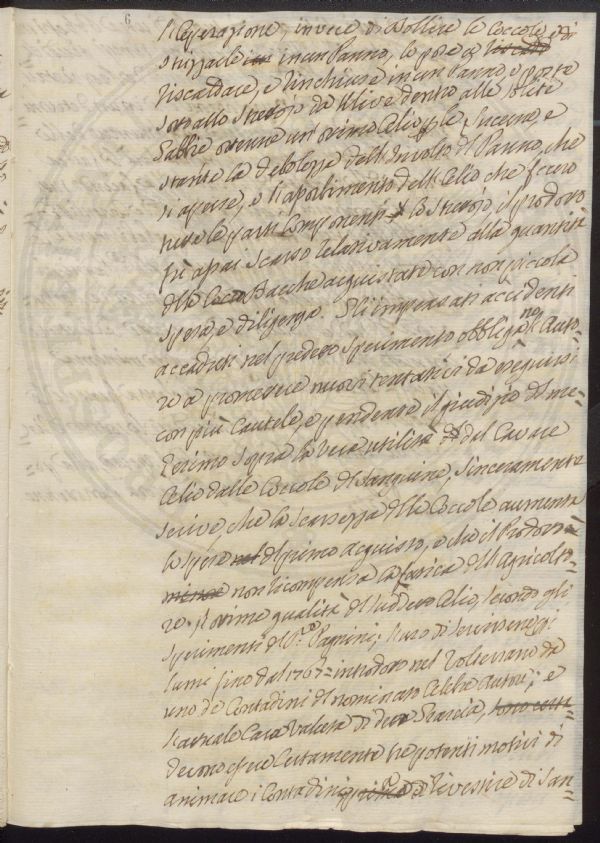 6
l'Operazione, invece di bollire le Coccole, e di
struzzarle in un Panno, le pose a
riscaldare, e rinchiuse in un Panno, e poste
sotto allo Strettojo da Ulive dentro alle
Gabbie ottenne un ottimo Olio per le Lucerne, e
stante la debolezza dell'Involto di Panno, che
si aperse, e l'assorbimento dell'Olio che fecero
tutte le parti componenti lo Strettojo, il prodotto
fù assai scarso relativamente alla quantità
delle Bacche acquistate con non piccola
spesa, e diligenza. Gli impensati accidenti
accaduti nel predetto sperimento obbligano l'Auto=
re a promettere nuovi tentativi da eseguirsi
con più cautele, e pendente il giudizio del me=
desimo sopra la vera utilità del Cavare
Olio dalle Coccole di Sanguine, sinceramente
scrive, che la scarsezza delle Coccole aumenta
la spesa del primo acquisto, e che il Prodotto
non ricompensa la fatica dell'Agricolto=
re. L'ottima qualità del suddetto Olio, secondo gli
sperimenti del Pagnini; l'uso di servirsene per i
lumi fino dal 1767 introdotto nel Volterrano da
uno de Contadini del nominato celebre Autore; e
l'attuale Cara valuta di detta Grascia,
devono essere certamente tre potenti motivi di
animare i Contadini a rivestire di San=